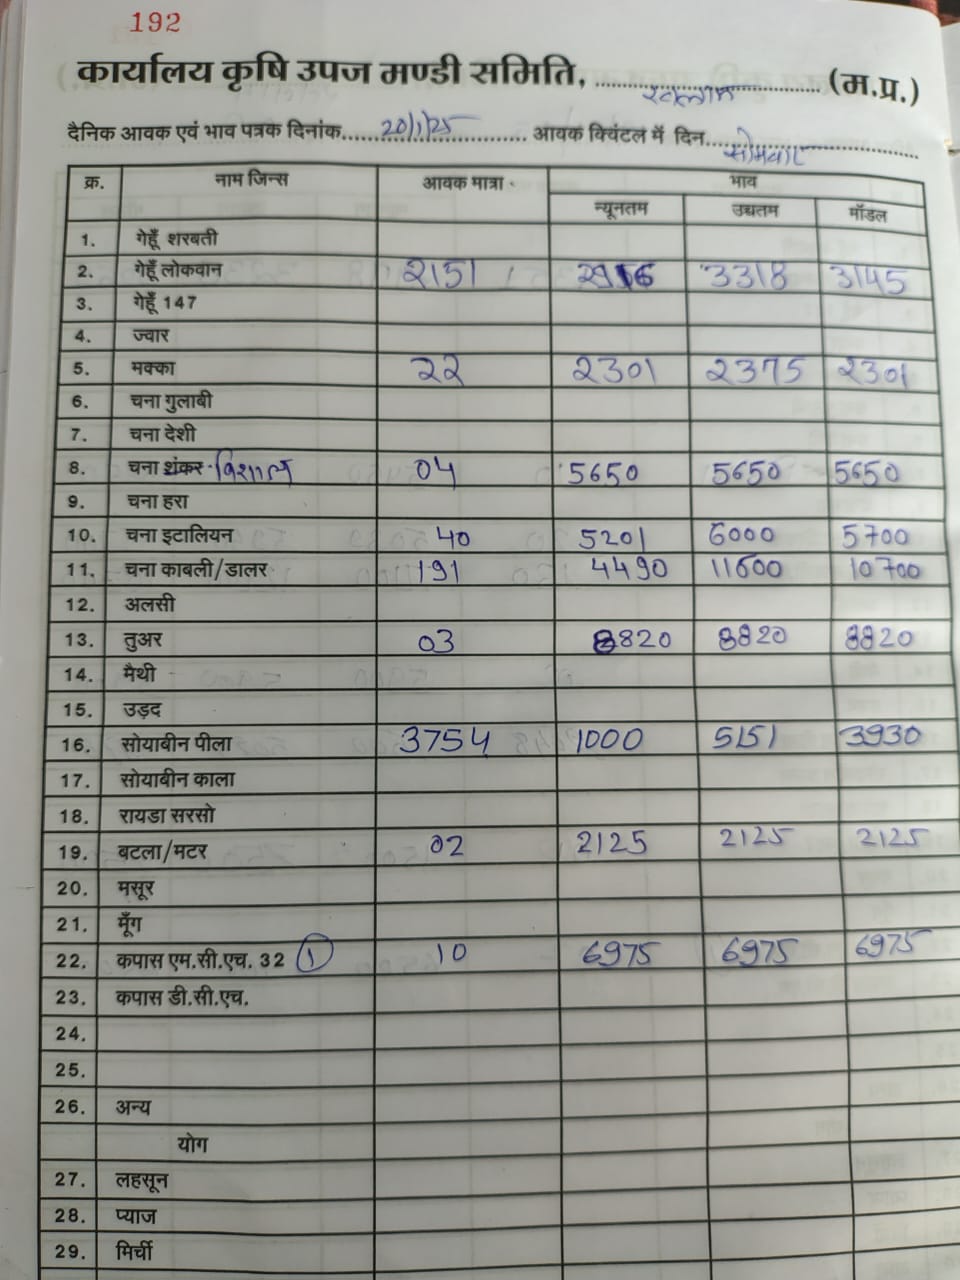 192
कार्यालय कृषि उपज मण्डी समिति, रतलाम (म.प्र.)
दैनिक आवक एवं भाव पत्रक दिनांक 20/1/25 आवक क्विंटल में दिन सोमवार
क्र. नाम जिन्स आवक मात्रा भाव
न्यूनतम उच्चतम मॉडल
1. गेहूँ शरबती
2. गेहूँ लोकवान 2151 3318 3145
3. गेहूँ 147
4. ज्वार
5. मक्का 22 2301 2375 2301
6. चना गुलाबी
7. चना देशी
8. चना शंकर विशाल 04 5650 5650 5650
9. चना हरा
10. चना इटालियन 40 5201 6000 5700
11. चना काबली/डालर 191 4490 11600 10700
12. अलसी
13. तुअर 03 8820 8820 8820
14. मैथी
15. उड़द
16. सोयाबीन पीला 3754 1000 5151 3930
17. सोयाबीन काला
18. रायडा सरसो
19. बटला/मटर 02 2125 2125 2125
20. मसूर
21. मूँग
22. कपास एम.सी.एच. 32 1 10 6975 6975 6975
23. कपास डी.सी.एच.
24.
25.
26. अन्य
योग
27. लहसून
28. प्याज
29. मिर्ची